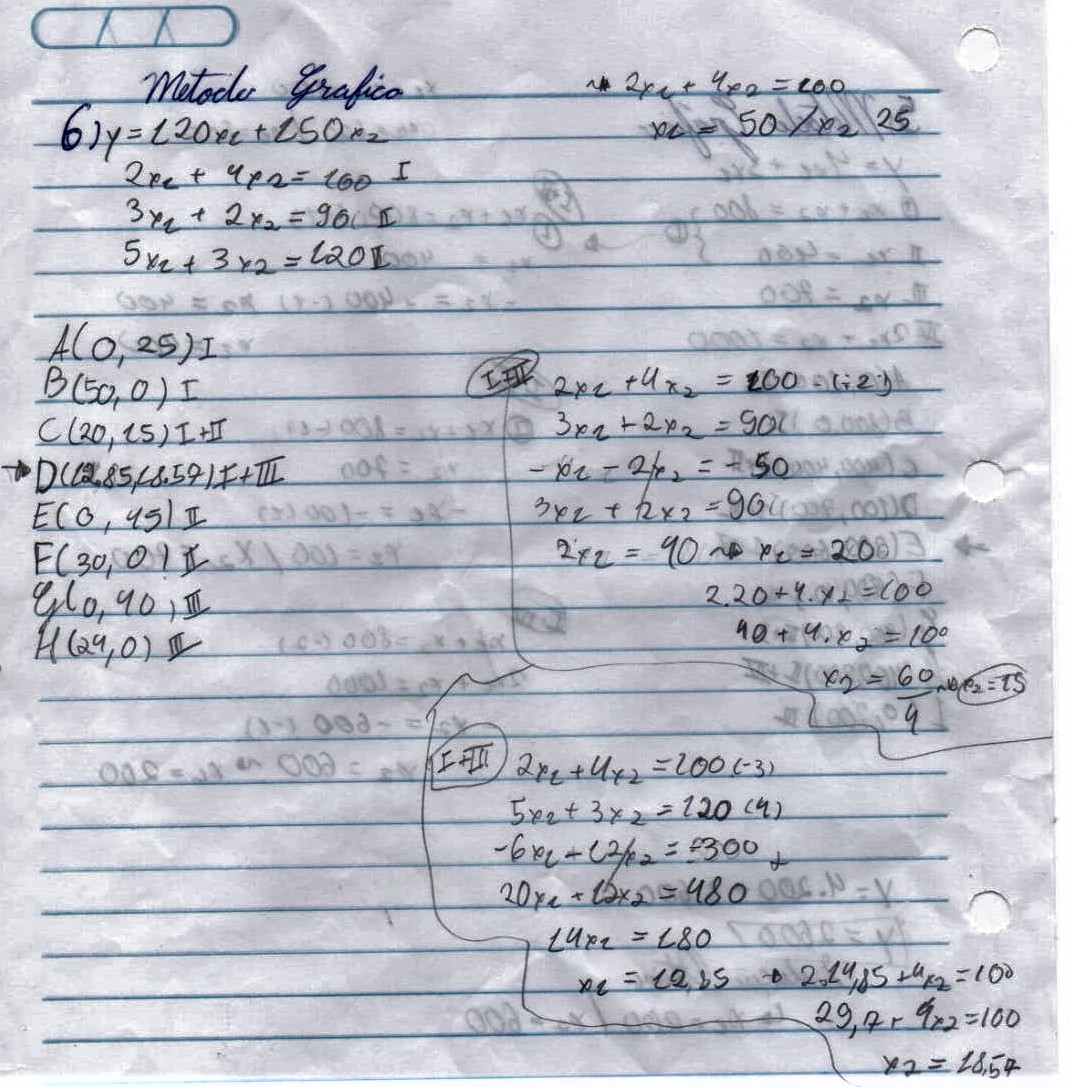 Metodo Grafico
6) y = 120x1 + 150x2
2x1 + 4x2 = 100 I
3x1 + 2x2 = 90 II
5x1 + 3x2 = 120 III
→ 2x1 + 4x2 = 100
x1 = 50 / x2 25
A(0, 25) I
B(50, 0) I
C(20, 15) I+II
→ D(12,85, 18,57) I+III
E(0, 45) II
F(30, 0) II
G(0, 40) III
H(24, 0) III
I+II
2x1 + 4x2 = 100 (÷2)
3x1 + 2x2 = 90
-x1 - 2x2 = -50
3x1 + 2x2 = 90
2x1 = 40 → x1 = 20
2.20 + 4.x2 = 100
40 + 4.x2 = 100
x2 = 60/4 → x2 = 15
I+III
2x1 + 4x2 = 100 (-3)
5x1 + 3x2 = 120 (4)
-6x1 - 12x2 = -300 +
20x1 + 12x2 = 480
14x1 = 180
x1 = 12,85 → 2.14,85 + 4x2 = 100
29,7 + 4x2 = 100
x2 = 18,57